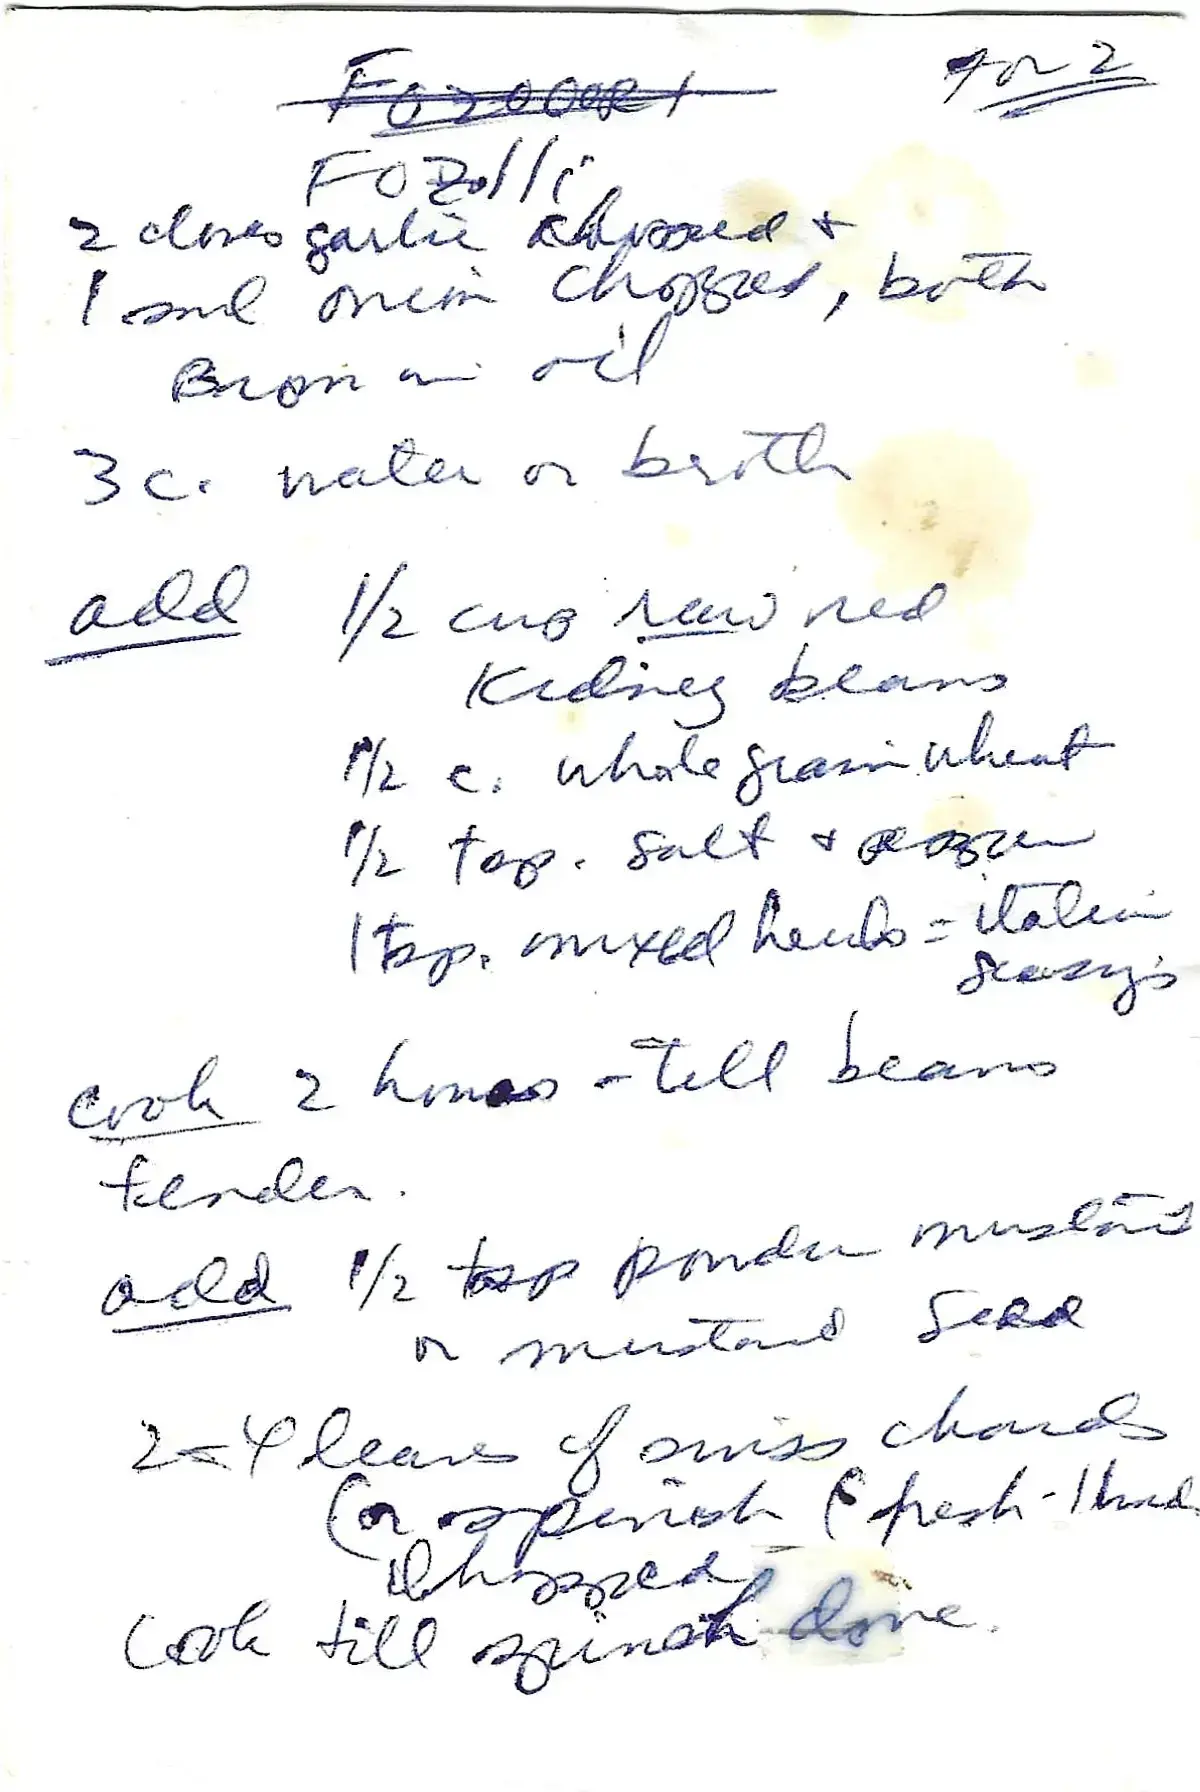 for 2
FOZolli
2 cloves garlic chopped +
1 sml onion chopped, both
Brown in oil
3 c. water or broth
add 1/2 cup raw red
Kidney beans
1/2 c. whole grain wheat
1/2 tsp. salt + pepper
1 tsp. mixed herbs = italian
cook 2 hours - till beans
tender.
add 1/2 tsp powder mustard
or mustard seed
2-4 leaves of swiss chards
(or spinish (fresh - 1
chopped
Cook till spinish done.